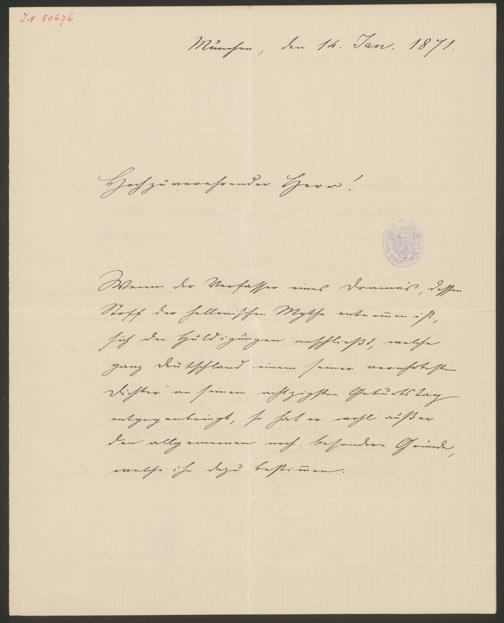 I.N. 80676
München, den 14. Jan. 1871.
Hochzuverehrender Herr!
Wenn der Verfasser eines Dramas, dessen
Stoff der hellenischen Mythe entnommen ist,
sich den Huldigungen anschließt, welche
ganz Deutschland einem seiner verehrtesten
Dichter an seinem achtzigsten Geburtstag
entgegenbringt, so hat er wohl außer
den allgemeinen noch besondere Gründe,
welche ihn dazu bestimmen.